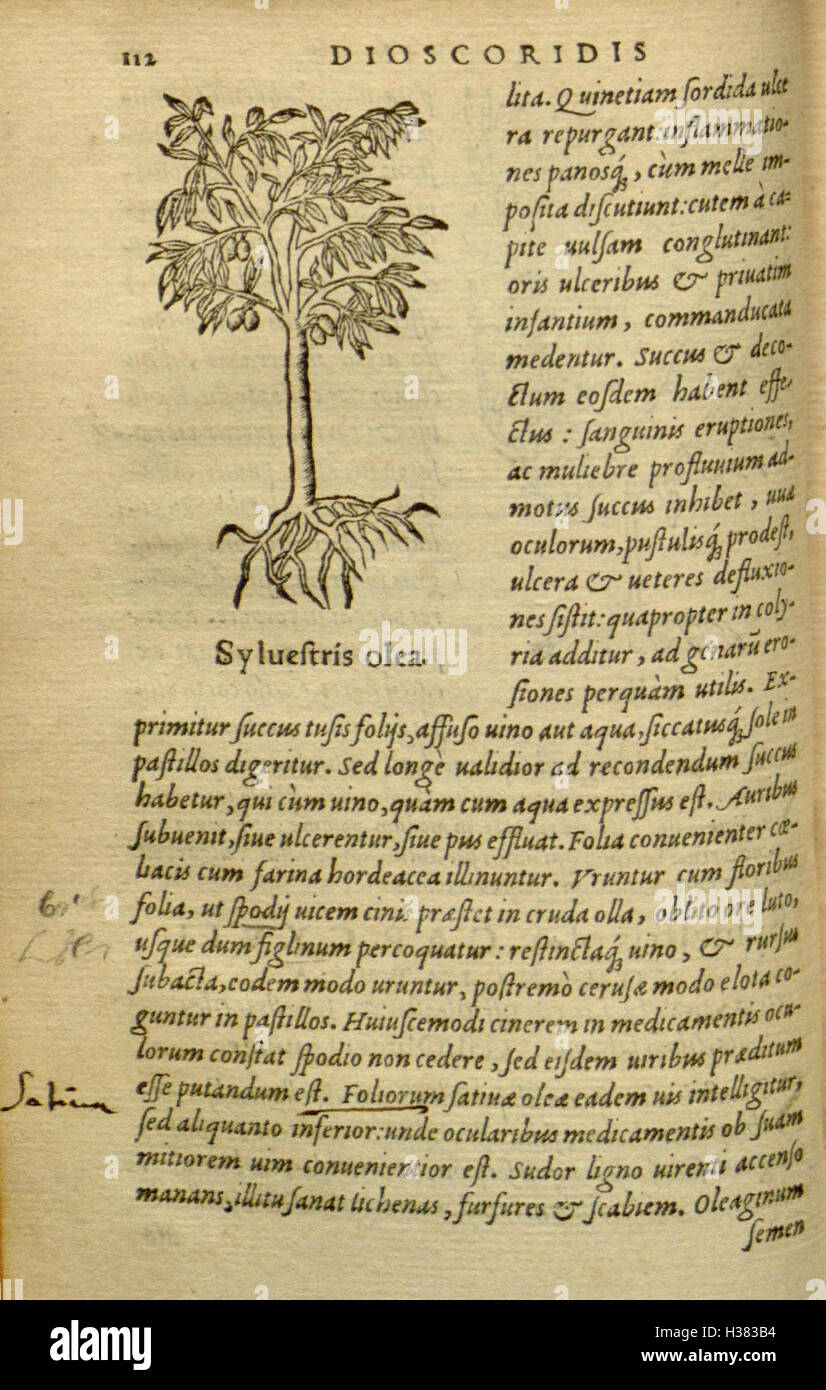 112 DIOSCORIDIS
lita. Quinetiam ſordida ulce
ra repurgant: inflammatio-
nes panosq́;, cùm melle im-
poſita diſcutiunt: cutem à ca-
pite uulſam conglutinant:
oris ulceribus & priuatim
infantium, commanducata
medentur. Succus & deco-
ctum eoſdem habent effe-
ctus: ſanguinis eruptiones,
ac muliebre profluuium ad-
motus ſuccus inhibet, uuæ
oculorum, puſtulisq́; prodeſt,
ulcera & ueteres defluxio-
nes ſiſtit: quapropter in coly-
ria additur, ad genarū ero-
ſiones perquàm utilis. Ex-
Sylueſtris olea.
primitur ſuccus tuſis folijs, affuſo uino aut aqua, ſiccatusq́; ſole in
paſtillos digeritur. Sed longè ualidior ad recondendum ſuccus
habetur, qui cùm uino, quàm cum aqua expreſſus eſt. Auribus
ſubuenit, ſiue ulcerentur, ſiue pus effluat. Folia conuenienter cœ-
liacis cum farina hordeacea illinuntur. Vruntur cum floribus
folia, ut ſpodij uicem cinis præſtet in cruda olla, oblito ore luto,
uſque dum figlinum percoquatur: reſtinctaq́; uino, & rurſus
ſubacta, eodem modo uruntur, poſtremò ceruſæ modo elota co-
guntur in paſtillos. Huiuſcemodi cinerem in medicamentis ocu-
lorum conſtat ſpodio non cedere, ſed eiſdem uiribus præditum
eſſe putandum eſt. Foliorum ſatiuæ oleæ eadem uis intelligitur,
ſed aliquanto inferior: unde ocularibus medicamentis ob ſuam
mitiorem uim conuenientior eſt. Sudor ligno uirenti accenſo
manans, illitu ſanat lichenas, furfures & ſcabiem. Oleaginum
ſemen
alamy
Image ID: H383B4
www.alamy.com